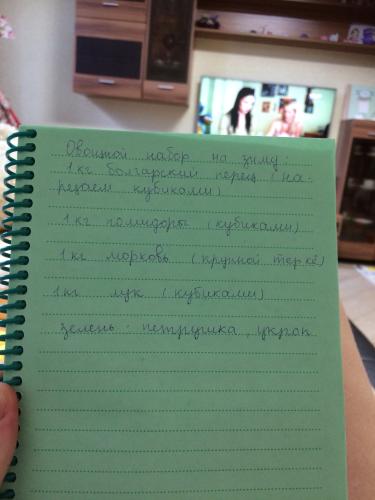 Овощной набор на зиму:
1 кг болгарский перец (на-
резаем кубиками)
1 кг помидоры (кубиками)
1 кг морковь (крупной терке)
1 кг лук (кубиками)
зелень: петрушка, укроп